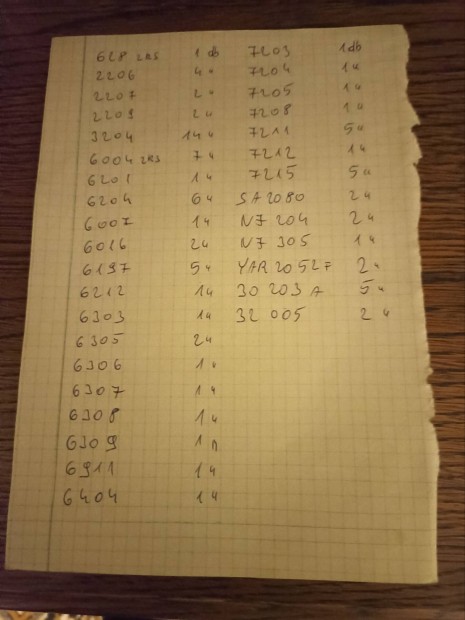 628 2RS 1 db 7203 1 db
2206 4 " 7204 1 "
2207 2 " 7205 1 "
2209 2 " 7208 1 "
3204 14 " 7211 5 "
6004 2RS 7 " 7212 1 "
6201 1 " 7215 5 "
6204 6 " SA 2080 2 "
6007 1 " N7 204 2 "
6016 2 " N7 305 1 "
6197 5 " YAR 205 2F 2 "
6212 1 " 30 203 A 5 "
6303 1 " 32 005 2 "
6305 2 "
6306 1 "
6307 1 "
6308 1 "
6309 1 "
6911 1 "
6404 1 "